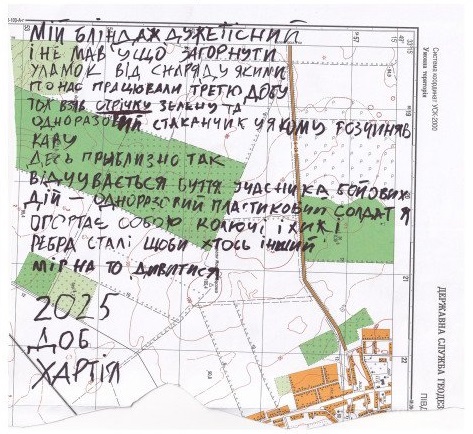 МІЙ БЛІНДАЖ ДУЖЕ ТІСНИЙ
І НЕ МАВ У ЩО ЗАГОРНУТИ
УЛАМОК ВІД СНАРЯДУ ЯКИМИ
ПО НАС ПРАЦЮВАЛИ ТРЕТЮ ДОБУ
ТОЖ ВЗЯВ СТРІЧКУ ЗЕЛЕНУ ТА
ОДНОРАЗОВИЙ СТАКАНЧИК У ЯКОМУ РОЗЧИНЯВ
КАВУ
ДЕСЬ ПРИБЛИЗНО ТАК
ВІДЧУВАЄТЬСЯ БУТТЯ УЧАСНИКА БОЙОВИХ
ДІЙ — ОДНОРАЗОВИЙ ПЛАСТИКОВИЙ СОЛДАТ Я
ОГОРТАЄ СОБОЮ КОЛЮЧІ І ХИЖІ
РЕБРА СТАЛІ ЩОБИ ХТОСЬ ІНШИЙ
МІГ НА ТО ДИВИТИСЯ
2025
ДОБ
ХАРТІЯ
Система координат УСК-2000
Умовна територія
ДЕРЖАВНА СЛУЖБА ГЕОДЕЗ
ПІВД